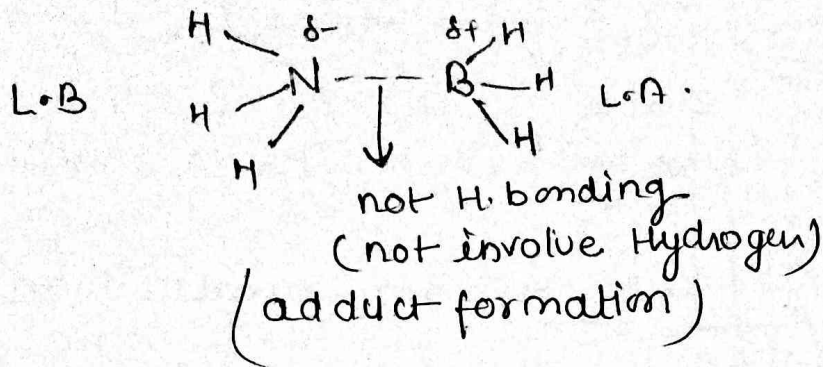 H δ- δ+ H
L.B N --- B H L.A.
H H
H
not H. bonding
(not involve Hydrogen)
(adduct formation)